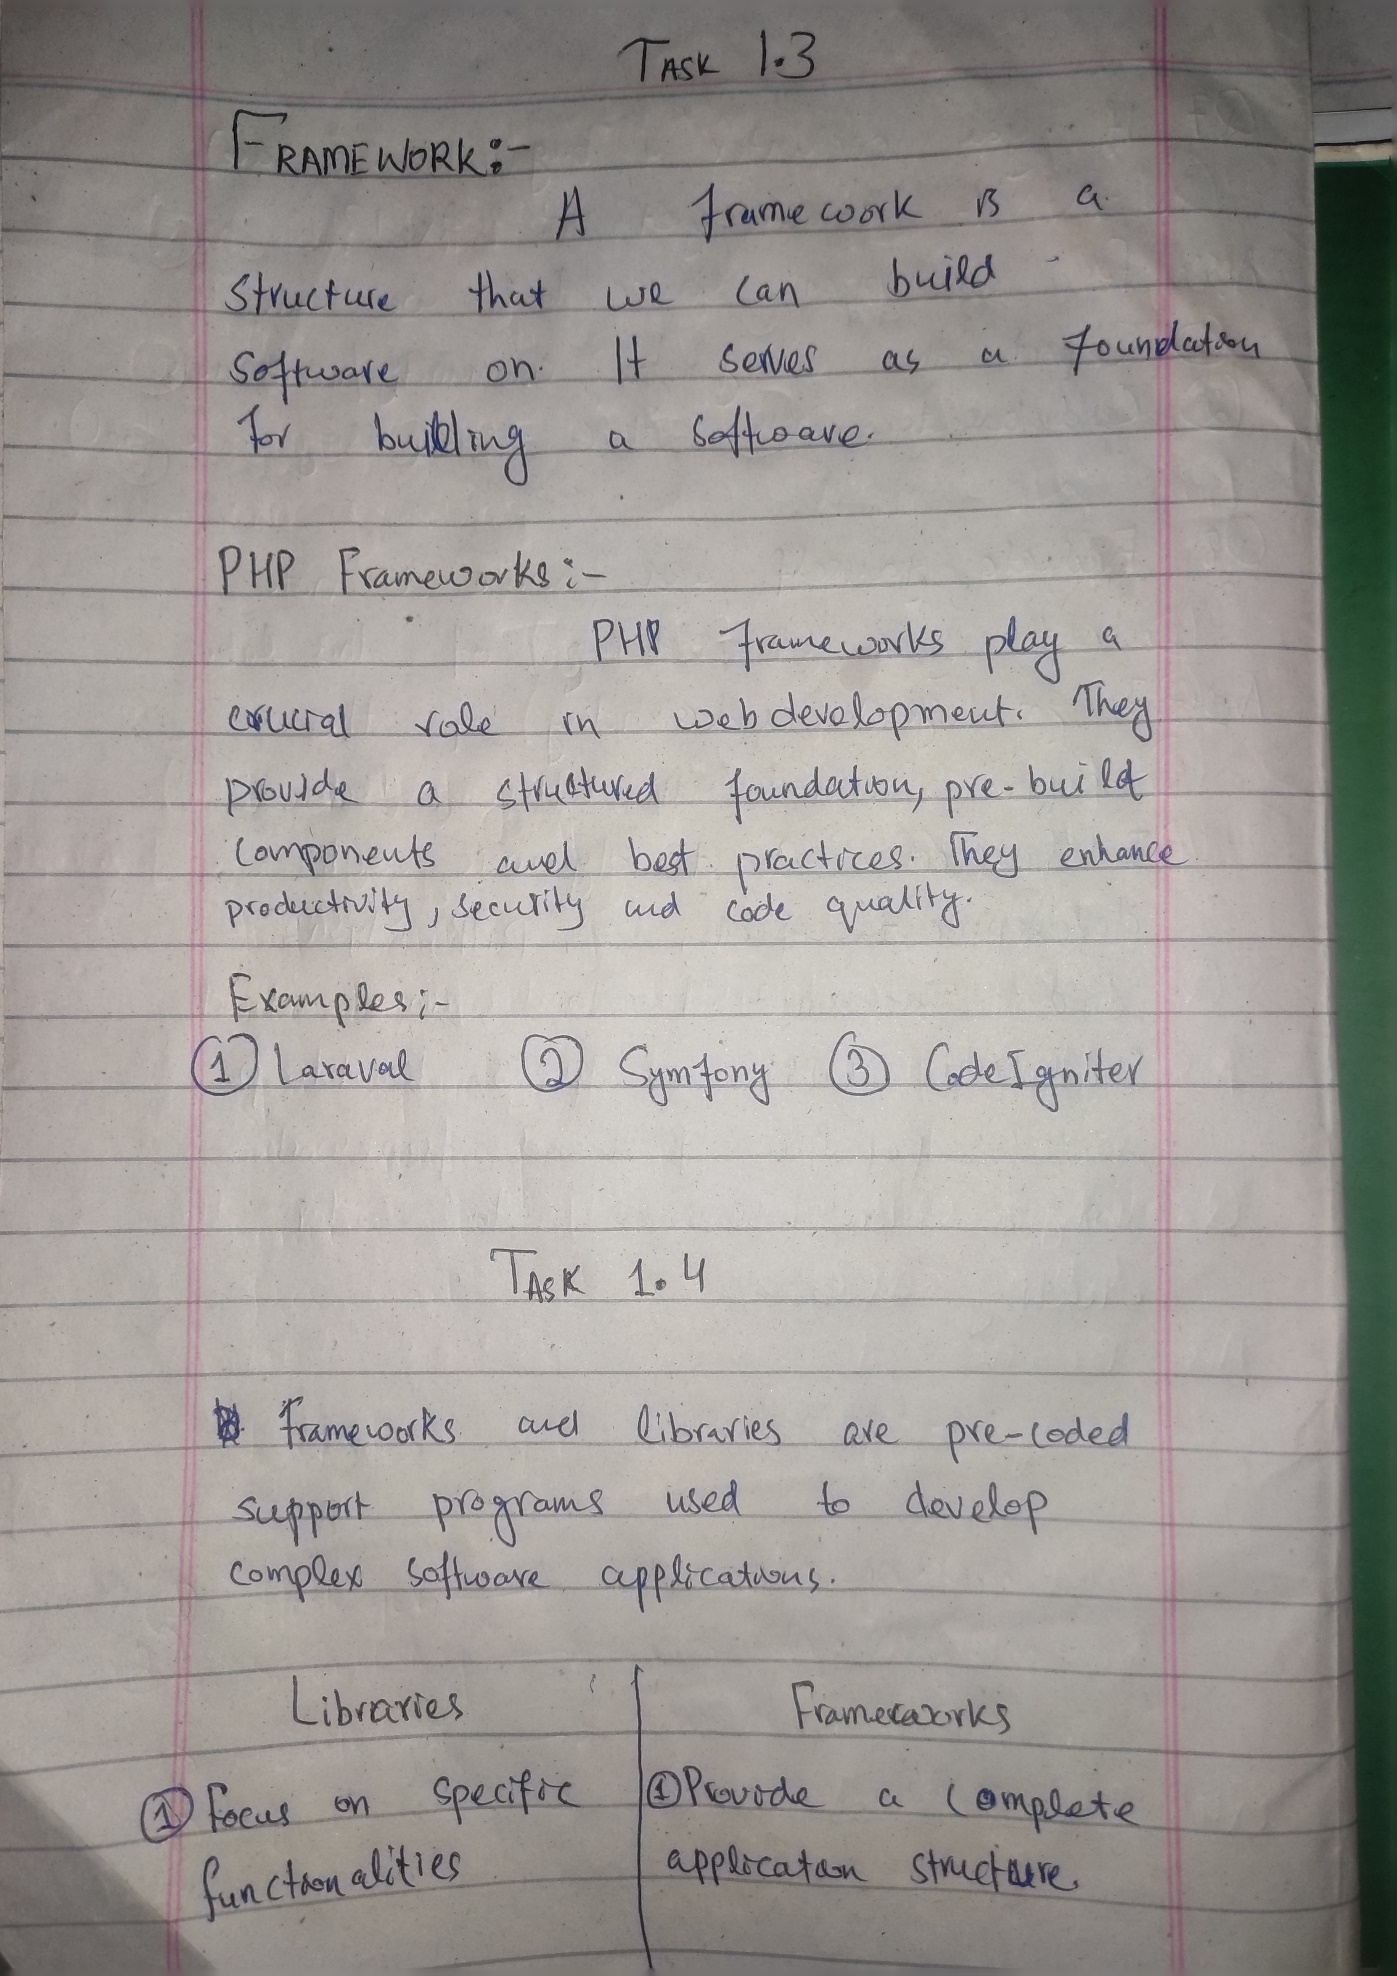 TASK 1.3
FRAMEWORK:-
A framework is a
structure that we can build
software on. It serves as a foundation
for building a software.
PHP Frameworks:-
PHP frameworks play a
crucial role in web development. They
provide a structured foundation, pre-build
components and best practices. They enhance
productivity, security and code quality.
Examples:-
① Laraval ② Symfony ③ CodeIgniter
TASK 1.4
Frameworks and libraries are pre-coded
support programs used to develop
complex software applications.
Libraries Frameworks
① Focus on specific ① Provide a complete
functionalities application structure.